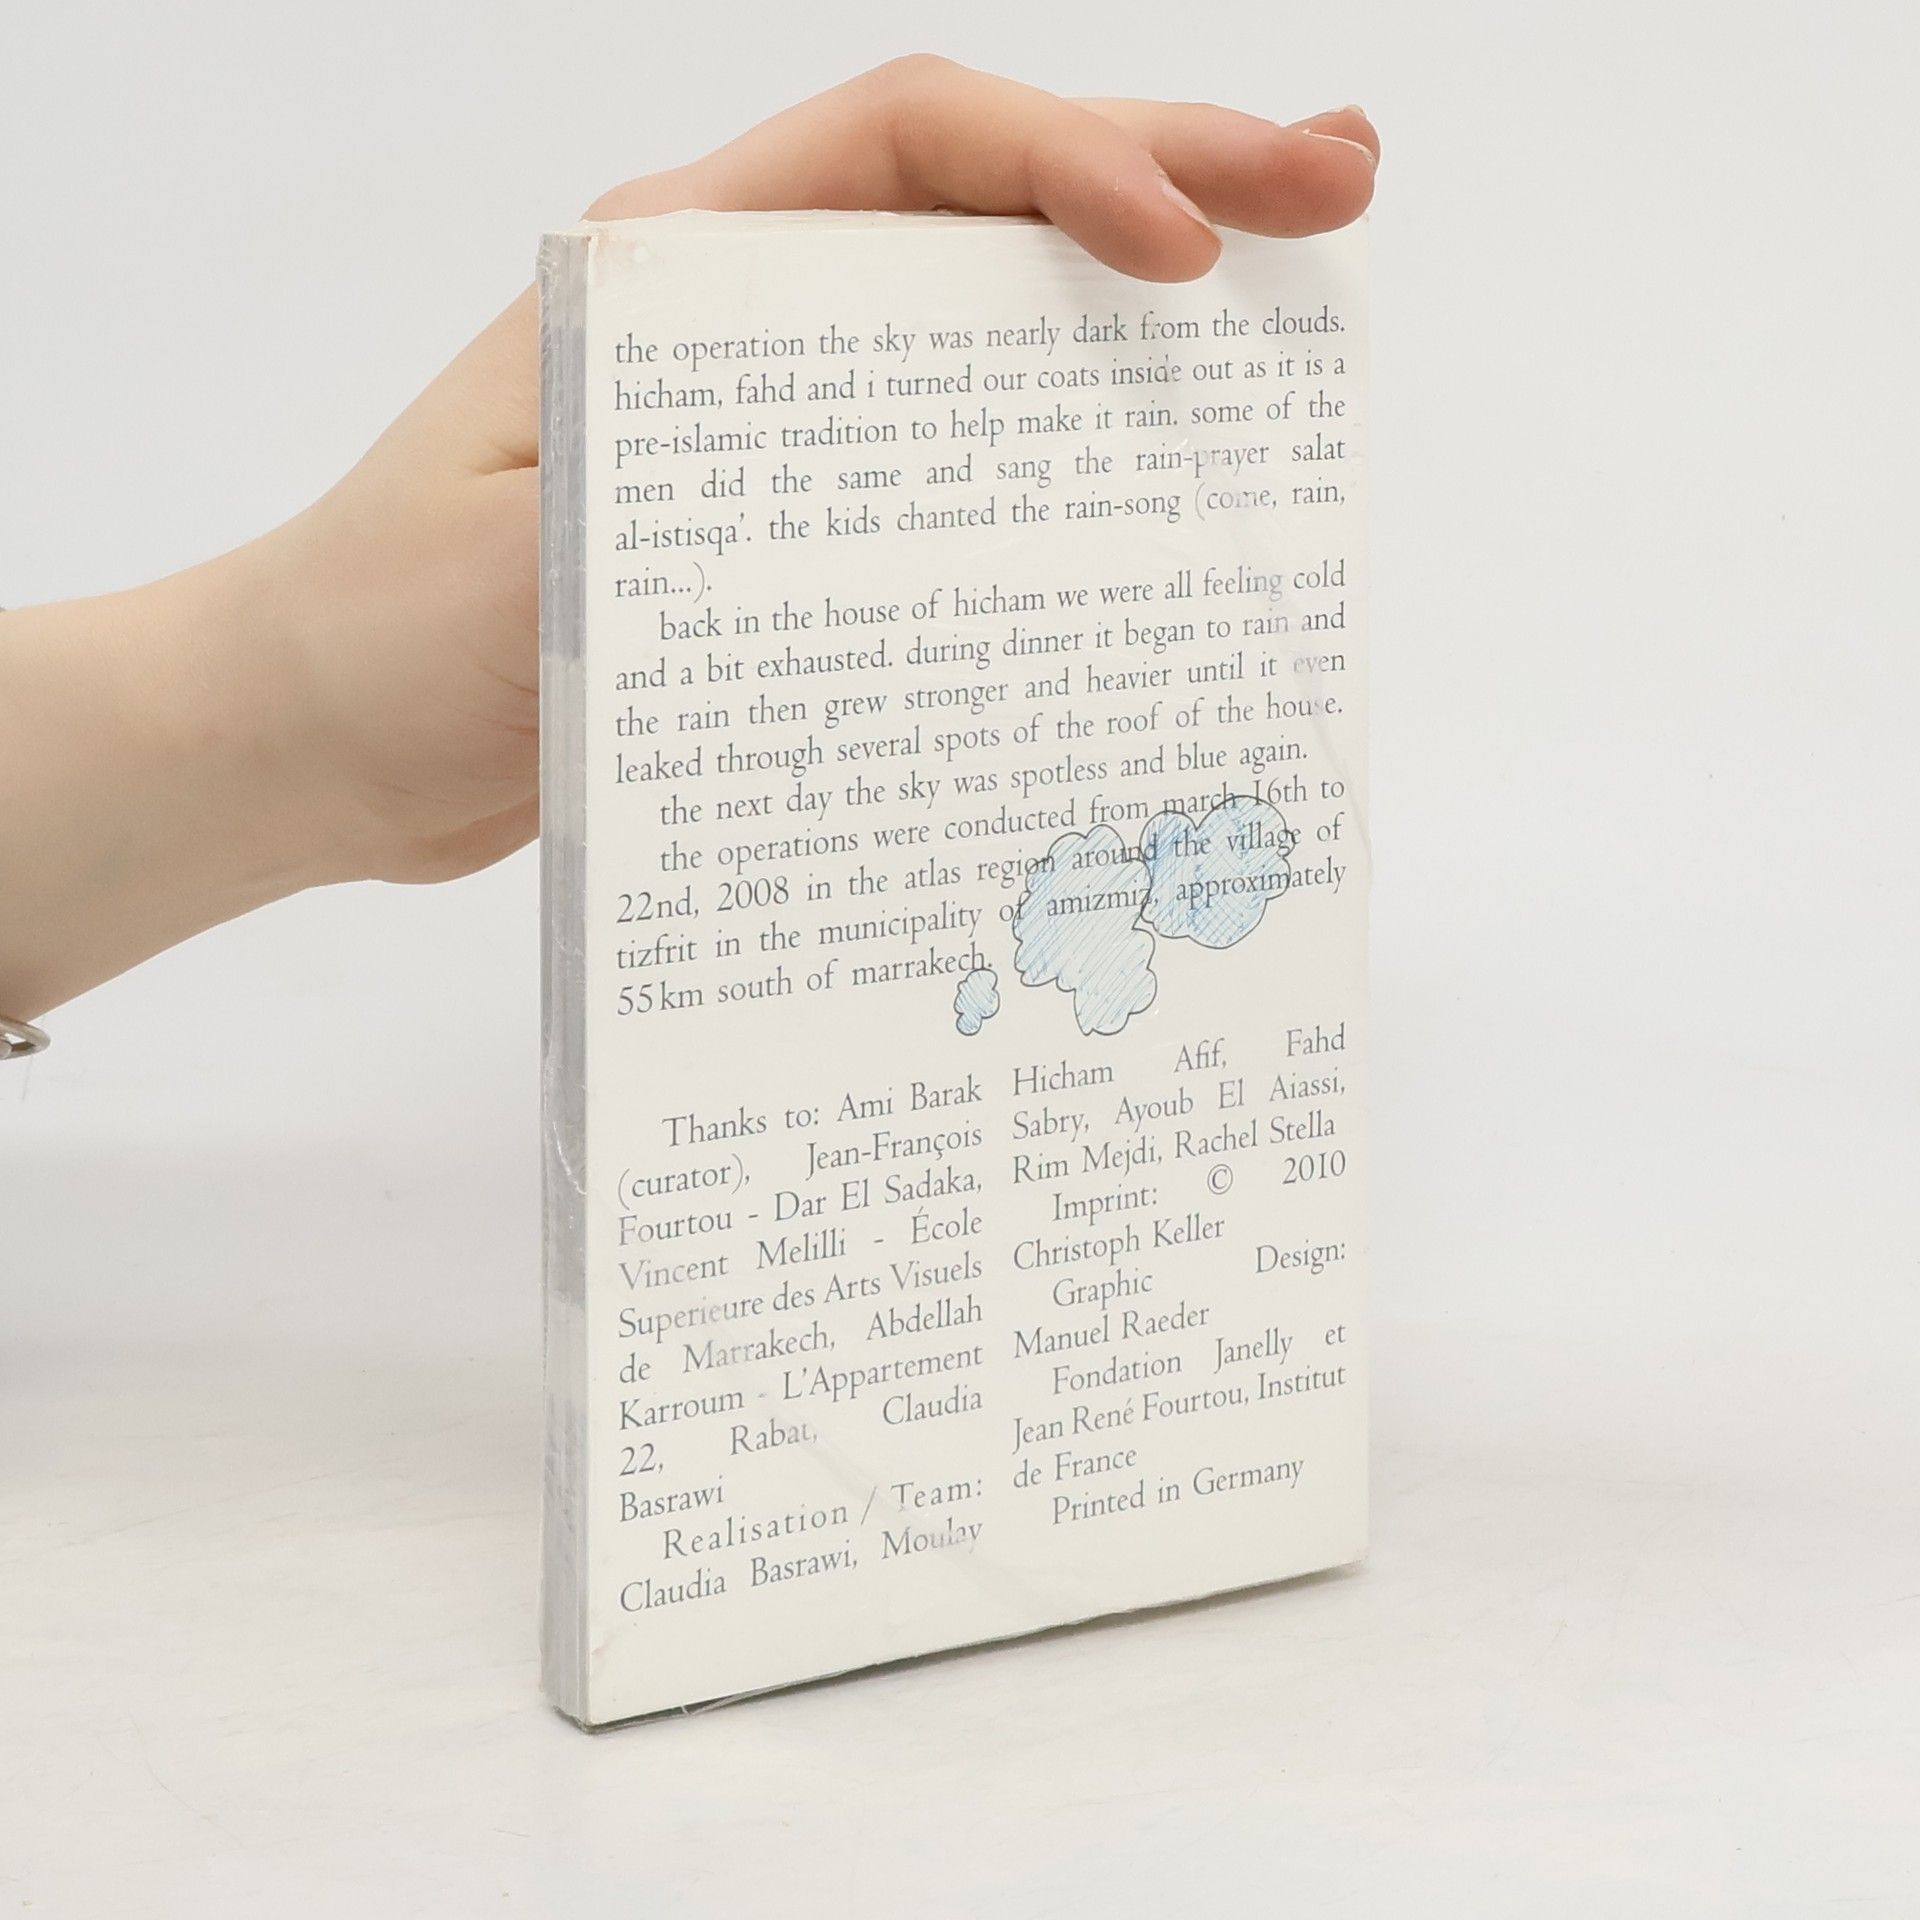 the operation the sky was nearly dark from the clouds.
hicham, fahd and i turned our coats inside out as it is a
pre-islamic tradition to help make it rain. some of the
men did the same and sang the rain-prayer salat
al-istisqa’. the kids chanted the rain-song (come, rain,
rain...).
back in the house of hicham we were all feeling cold
and a bit exhausted. during dinner it began to rain and
the rain then grew stronger and heavier until it even
leaked through several spots of the roof of the house.
the next day the sky was spotless and blue again.
the operations were conducted from march 16th to
22nd, 2008 in the atlas region around the village of
tizfrit in the municipality of amizmiz, approximately
55 km south of marrakech.
Thanks to: Ami Barak
(curator), Jean-François
Fourtou - Dar El Sadaka,
Vincent Melilli - École
Superieure des Arts Visuels
de Marrakech, Abdellah
Karroum - L’Appartement
22, Rabat, Claudia
Basrawi
Realisation / Team:
Claudia Basrawi, Moulay
Hicham Afif, Fahd
Sabry, Ayoub El Aiassi,
Rim Mejdi, Rachel Stella
Imprint: © 2010
Christoph Keller
Graphic Design:
Manuel Raeder
Fondation Janelly et
Jean René Fourtou, Institut
de France
Printed in Germany